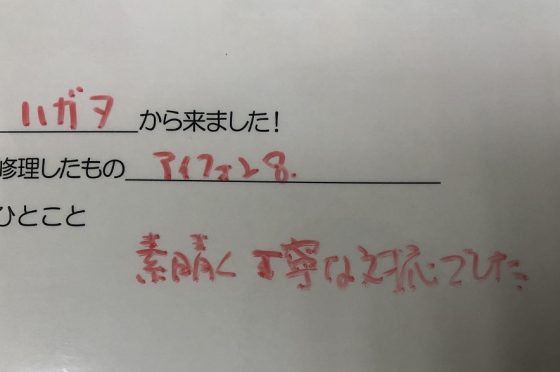 ハガタから来ました！
修理したもの アイフォン8.
ひとこと
素晴く 丁寧な対応でした